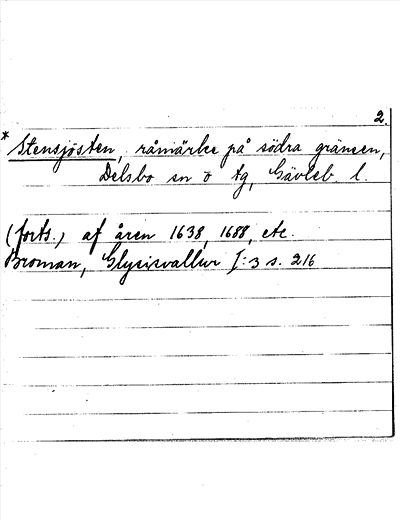 2.
* Stensjösten, råmärke på södra gränsen,
Delsbo sn o tg, Gävleb. l.
(forts.) af åren 1638, 1688, etc
Broman, Glysisvallur I:3 s. 216